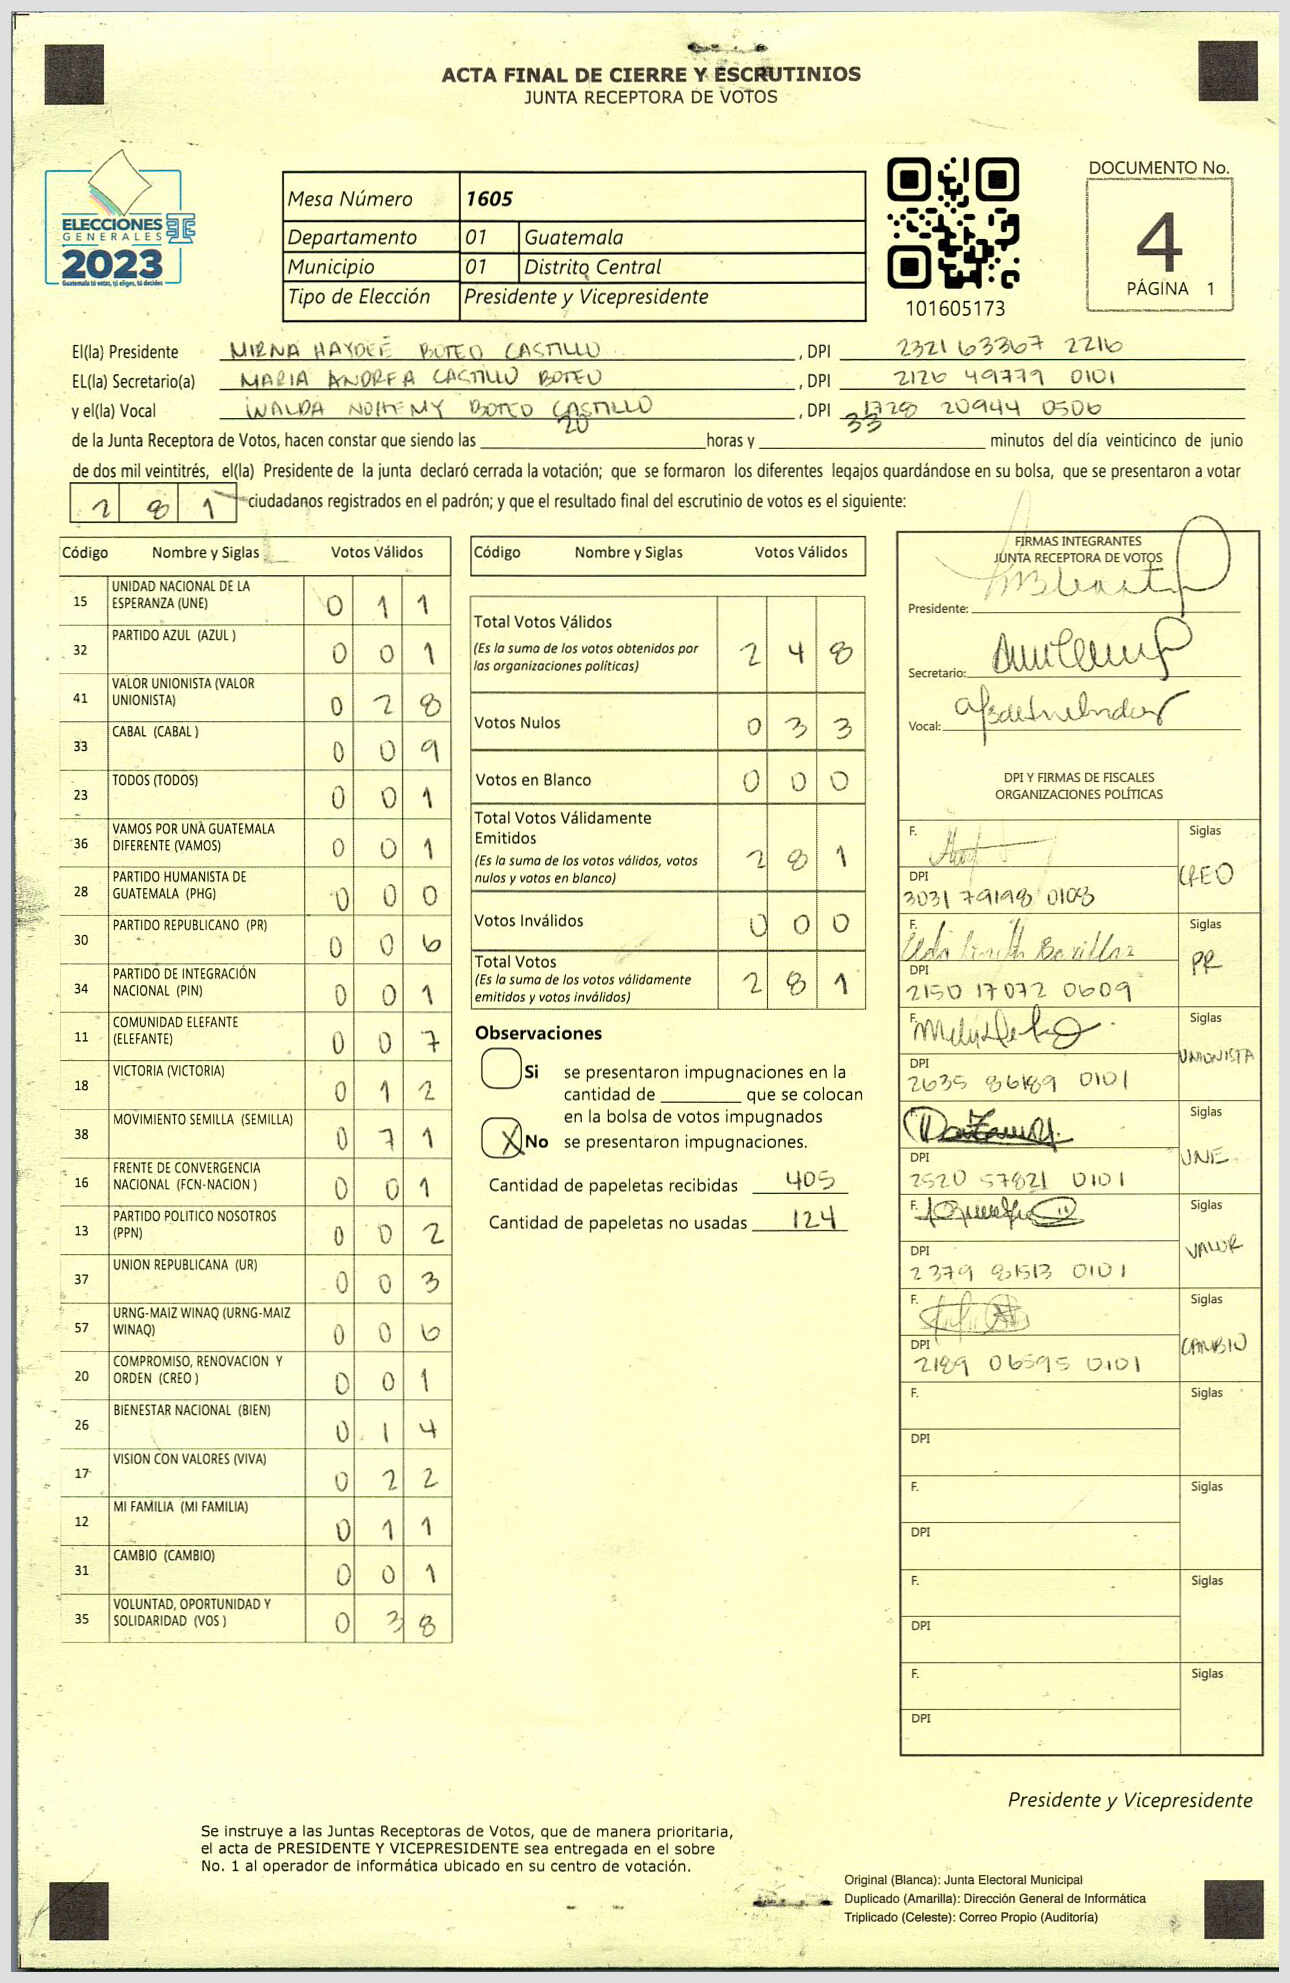 ACTA FINAL DE CIERRE Y ESCRUTINIOS
JUNTA RECEPTORA DE VOTOS
ELECCIONES
GENERALES
2023
Guatemala tú votas, tú eliges, tú decides
Mesa Número 1605
Departamento 01 Guatemala
Municipio 01 Distrito Central
Tipo de Elección Presidente y Vicepresidente
101605173
DOCUMENTO No.
4
PÁGINA 1
El(la) Presidente MIRNA HAYDEÉ BOTEO CASTILLO , DPI 2321 63367 2216
EL(la) Secretario(a) MARIA ANDREA CASTILLO BOTEO , DPI 2126 49779 0101
y el(la) Vocal WALDA NOHEMY BOTEO CASTILLO , DPI 1728 20944 0506
de la Junta Receptora de Votos, hacen constar que siendo las 20 horas y 33 minutos del día veinticinco de junio
de dos mil veintitrés, el(la) Presidente de la junta declaró cerrada la votación; que se formaron los diferentes legajos guardándose en su bolsa, que se presentaron a votar
281 ciudadanos registrados en el padrón; y que el resultado final del escrutinio de votos es el siguiente:
Código Nombre y Siglas Votos Válidos
15 UNIDAD NACIONAL DE LA ESPERANZA (UNE) 0 1 1
32 PARTIDO AZUL (AZUL ) 0 0 1
41 VALOR UNIONISTA (VALOR UNIONISTA) 0 2 8
33 CABAL (CABAL ) 0 0 9
23 TODOS (TODOS) 0 0 1
36 VAMOS POR UNA GUATEMALA DIFERENTE (VAMOS) 0 0 1
28 PARTIDO HUMANISTA DE GUATEMALA (PHG) 0 0 0
30 PARTIDO REPUBLICANO (PR) 0 0 6
34 PARTIDO DE INTEGRACIÓN NACIONAL (PIN) 0 0 1
11 COMUNIDAD ELEFANTE (ELEFANTE) 0 0 7
18 VICTORIA (VICTORIA) 0 1 2
38 MOVIMIENTO SEMILLA (SEMILLA) 0 7 1
16 FRENTE DE CONVERGENCIA NACIONAL (FCN-NACION ) 0 0 1
13 PARTIDO POLITICO NOSOTROS (PPN) 0 0 2
37 UNION REPUBLICANA (UR) 0 0 3
57 URNG-MAIZ WINAQ (URNG-MAIZ WINAQ) 0 0 6
20 COMPROMISO, RENOVACION Y ORDEN (CREO ) 0 0 1
26 BIENESTAR NACIONAL (BIEN) 0 1 4
17 VISION CON VALORES (VIVA) 0 2 2
12 MI FAMILIA (MI FAMILIA) 0 1 1
31 CAMBIO (CAMBIO) 0 0 1
35 VOLUNTAD, OPORTUNIDAD Y SOLIDARIDAD (VOS ) 0 3 8
Código Nombre y Siglas Votos Válidos
Total Votos Válidos 2 4 8
(Es la suma de los votos obtenidos por
las organizaciones políticas)
Votos Nulos 0 3 3
Votos en Blanco 0 0 0
Total Votos Válidamente
Emitidos 2 8 1
(Es la suma de los votos válidos, votos
nulos y votos en blanco)
Votos Inválidos 0 0 0
Total Votos 2 8 1
(Es la suma de los votos válidamente
emitidos y votos inválidos)
Observaciones
Si se presentaron impugnaciones en la
cantidad de que se colocan
en la bolsa de votos impugnados
X No se presentaron impugnaciones.
Cantidad de papeletas recibidas 405
Cantidad de papeletas no usadas 124
FIRMAS INTEGRANTES
JUNTA RECEPTORA DE VOTOS
Presidente:
Secretario:
Vocal:
DPI Y FIRMAS DE FISCALES
ORGANIZACIONES POLÍTICAS
F. Siglas
CREO
DPI
3031 79198 0108
F. Siglas
PR
DPI
2150 17072 0609
F. Siglas
UNIONISTA
DPI
2635 86189 0101
Siglas
UNE
DPI
2520 57821 0101
F. Siglas
VALOR
DPI
2379 81513 0101
F. Siglas
CAMBIO
DPI
2189 06595 0101
F. Siglas
DPI
F. Siglas
DPI
F. Siglas
DPI
F. Siglas
DPI
Presidente y Vicepresidente
Se instruye a las Juntas Receptoras de Votos, que de manera prioritaria,
el acta de PRESIDENTE Y VICEPRESIDENTE sea entregada en el sobre
No. 1 al operador de informática ubicado en su centro de votación.
Original (Blanca): Junta Electoral Municipal
Duplicado (Amarilla): Dirección General de Informática
Triplicado (Celeste): Correo Propio (Auditoría)